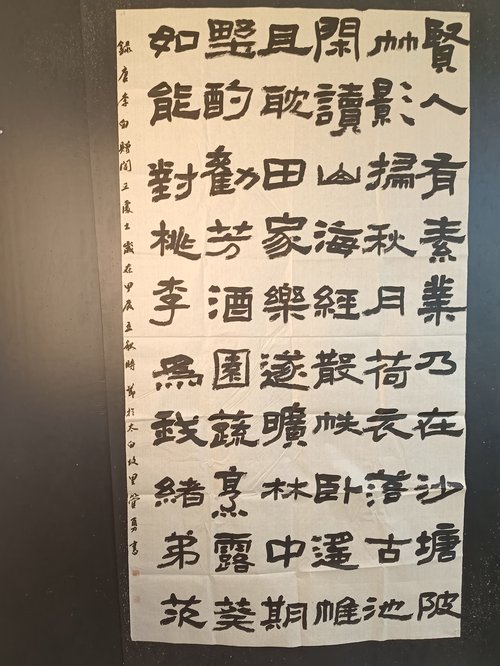 賢人有素業乃在沙塘陂
竹影掃秋月荷衣落古池
閑讀山海經散帙卧遥帷
且耽田家樂遂曠林中期
墅酌勸芳酒園蔬烹露葵
如能對桃李為我緒弟茨
錄唐李白贈閭丘處士歲在甲辰立秋時節於太白故里管勇書